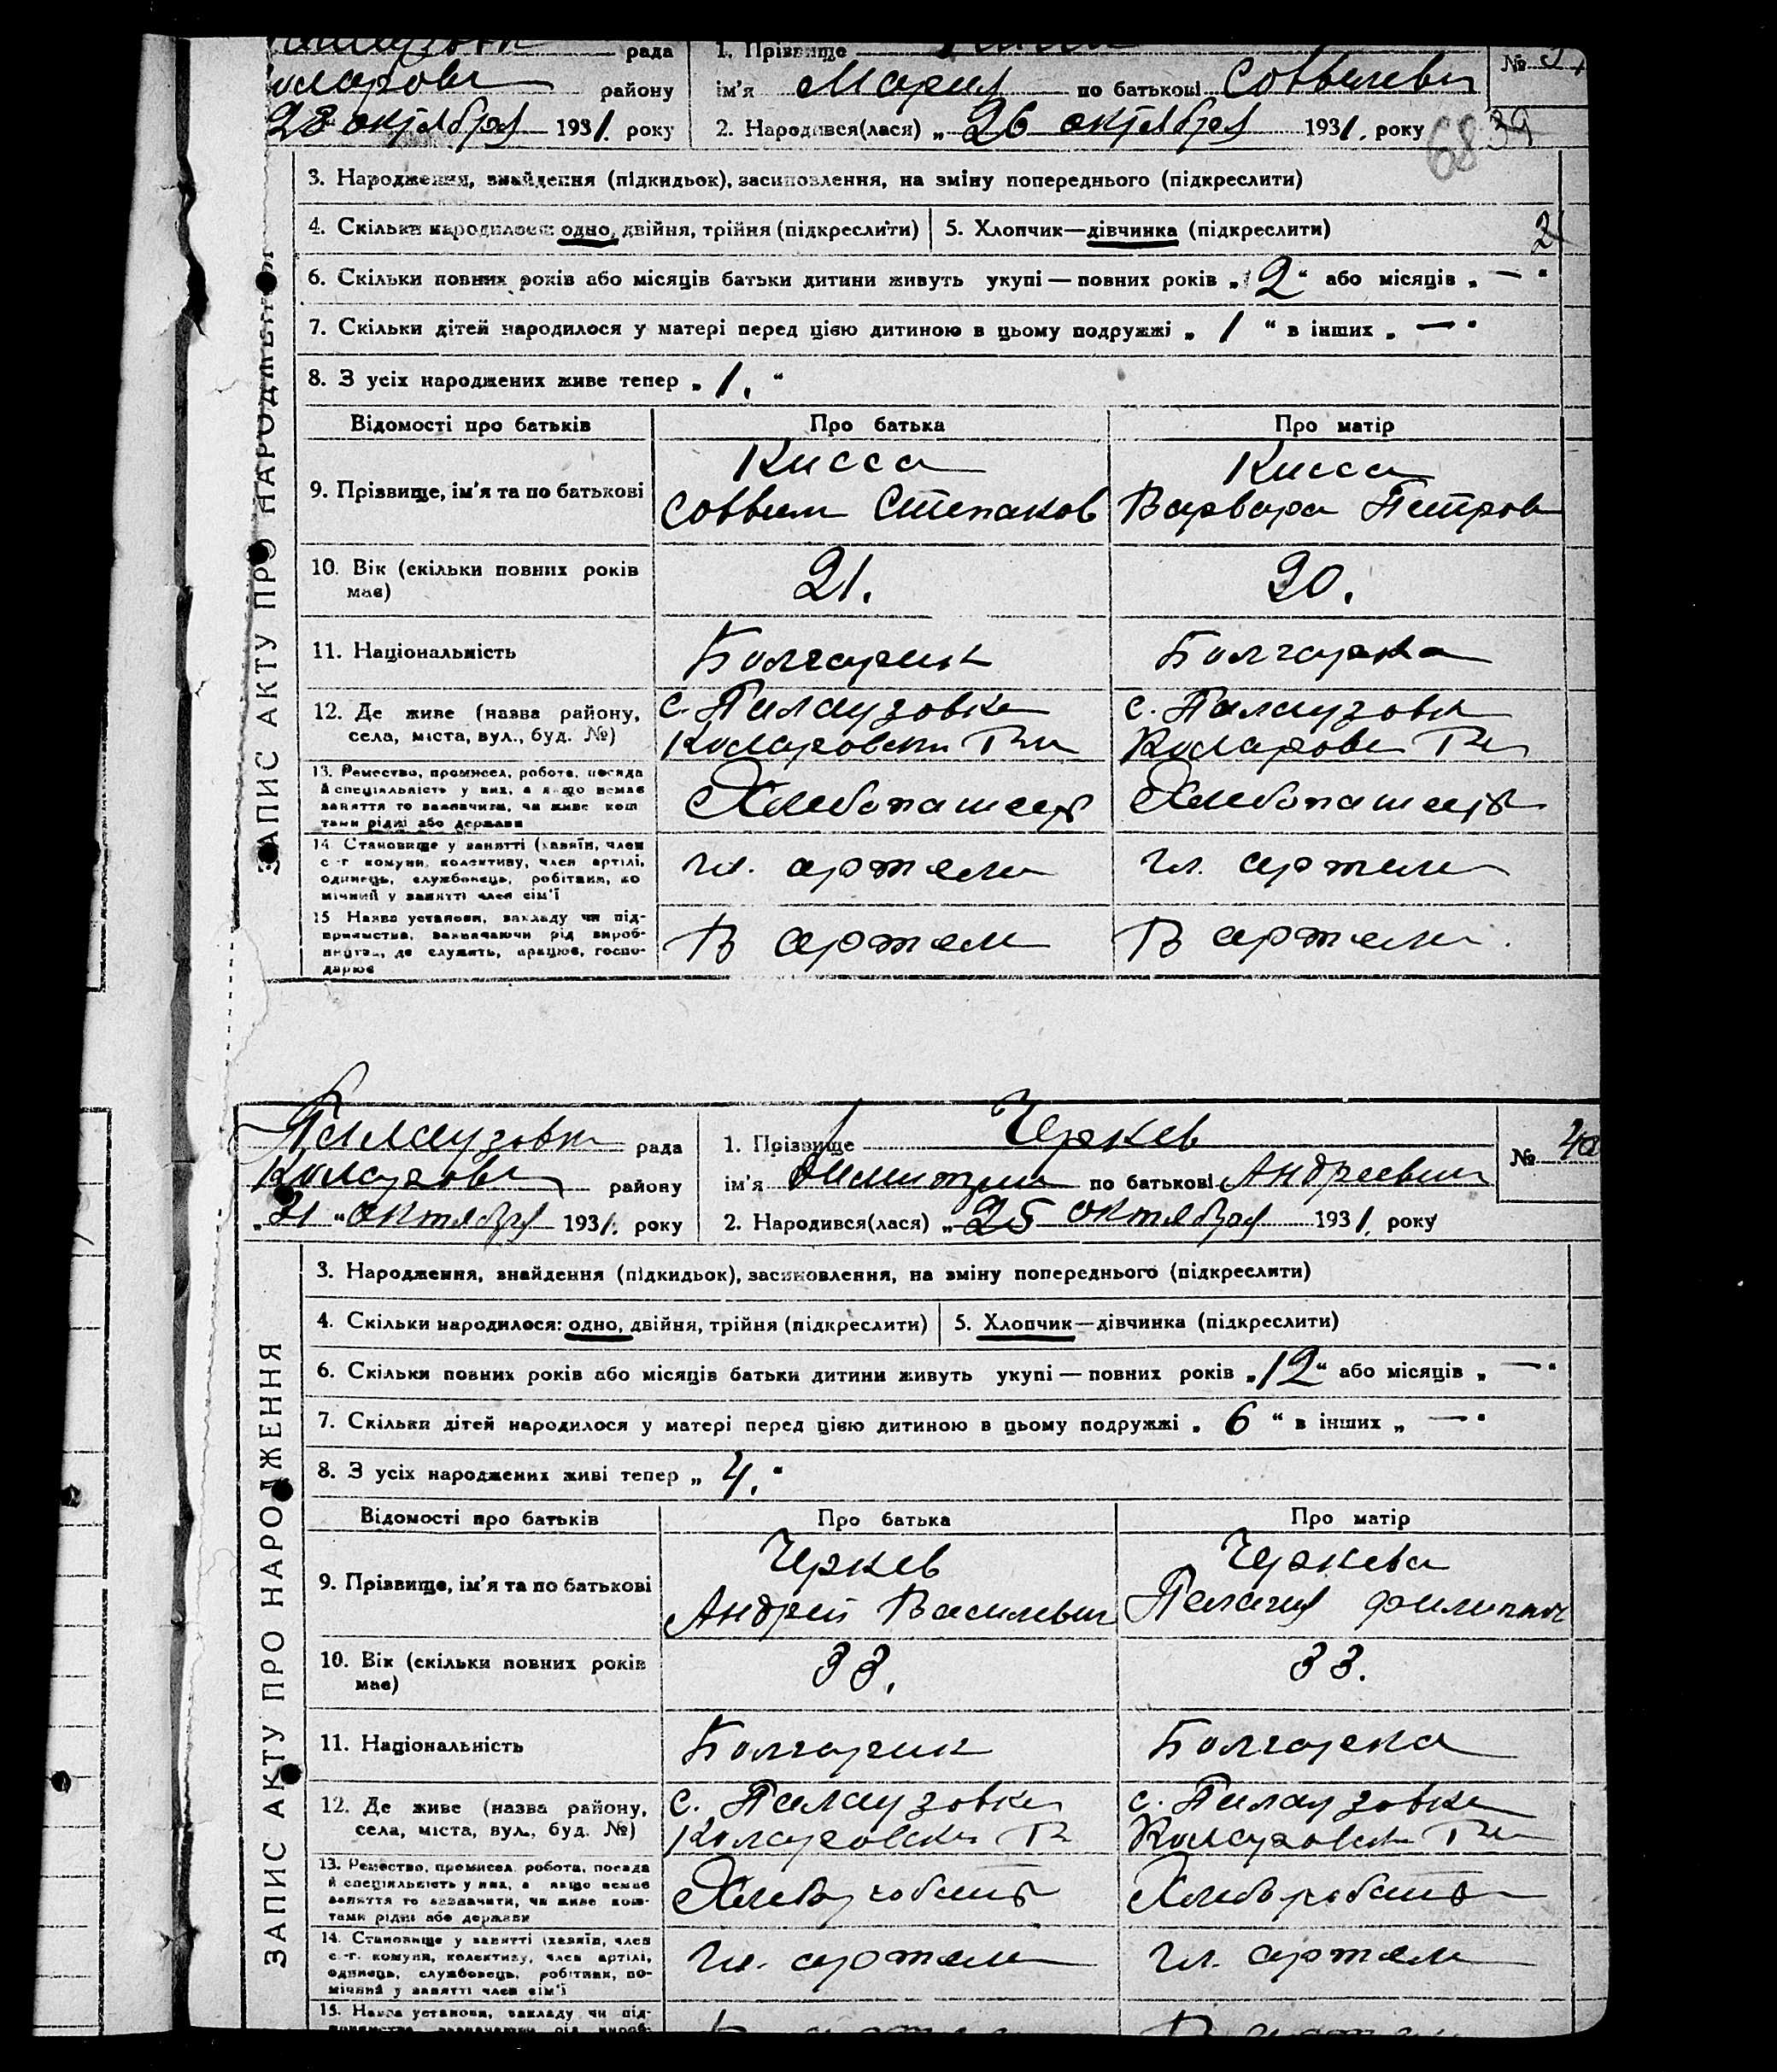 рада
1. Прізвище
№
району
ім'я Мария по батькові Соввилевн
28 октября 1931. року
2. Народився(лася) „ 26 октября 1931. року
68 39
3. Народження, знайдення (підкидьок), засиновлення, на зміну попереднього (підкреслити)
4. Скільки народилося: одно, двійня, трійня (підкреслити)
5. Хлопчик—дівчинка (підкреслити)
6. Скільки повних років або місяців батьки дитини живуть укупі — повних років „ 2 “ або місяців „ — “
7. Скільки дітей народилося у матері перед цією дитиною в цьому подружжі „ 1 “ в інших „ — “
8. З усіх народжених живе тепер „ 1. “
ЗАПИС АКТУ ПРО НАРОДЖЕННЯ
Відомості про батьків Про батька Про матір
9. Прізвище, ім'я та по батькові
Кисса Кисса
Соввил Степанов Варвара Петров
10. Вік (скільки повних років має)
21. 20.
11. Національність
Болгарин Болгарка
12. Де живе (назва району, села, міста, вул., буд. №)
с. Палаузовка с. Палаузовк
Коларовски Рн Коларовс Рн
13. Ремество, промисел, робота, посада
й спеціальність у них, а якщо немає
заняття то зазначити, чи живе кош
тами рідні або держави
Хлебопашест Хлебопашест
14 Становище у занятті (хазяїн, член
с -г комуни, колективу, член артілі,
одинець, службовець, робітник, по
мічний у занятті член сім'ї
чл. артели чл. артели
15 Назва установи, закладу чи під-
приємства, зазначаючи рід вироб-
ництва, де служить, працює, госпо-
дарює
В артели В артели.
Палаузовк рада
1. Прізвище Черкев
№ 40
Коларовс району
ім'я Димитрий по батькові Андреевич
„ 31 “ октября 1931. року
2. Народився(лася) „ 25 октября 1931. року
3. Народження, знайдення (підкидьок), засиновлення, на зміну попереднього (підкреслити)
4. Скільки народилося: одно, двійня, трійня (підкреслити)
5. Хлопчик—дівчинка (підкреслити)
6. Скільки повних років або місяців батьки дитини живуть укупі — повних років „ 12 “ або місяців „ — “
7. Скільки дітей народилося у матері перед цією дитиною в цьому подружжі „ 6 “ в інших „ — “
8. З усіх народжених живі тепер „ 4. “
ЗАПИС АКТУ ПРО НАРОДЖЕННЯ
Відомості про батьків Про батька Про матір
9. Прізвище, ім'я та по батькові
Черкев Черкева
Андрей Василевич Пелагия Филипов
10. Вік (скільки повних років має)
33. 33.
11. Національність
Болгарин Болгарка
12. Де живе (назва району, села, міста, вул., буд. №)
с. Палаузовка с. Палаузовка
Коларовски Р Коларовск Рн
13. Ремество, промисел, робота, посада
й спеціяльність у них, а якщо немає
заняття то зазначити, чи живе кош-
тами рідні або держави
14. Становище у занятті (хазяїн, член
с -г. комуни, колективу, член артілі,
одинець, службовець, робітник, по-
мічний у занятті член сім'ї
чл. артели чл. артели
15. Назва установи, закладу чи під-